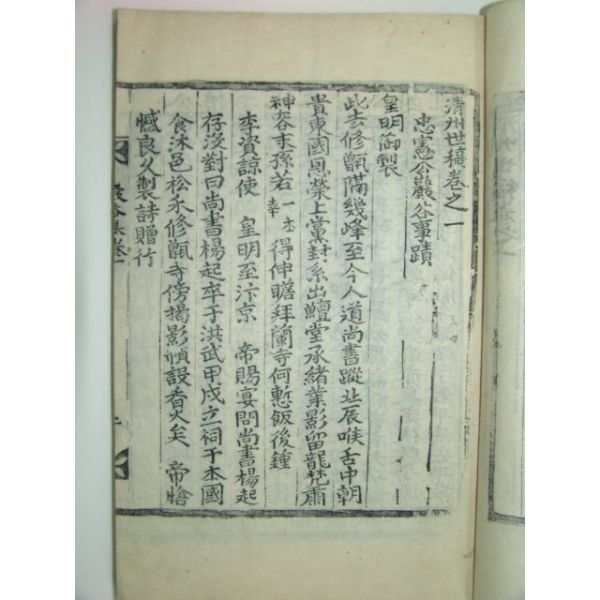 清州世稿卷之一
忠憲公巖谷事蹟
皇明御製
此去修甑隔幾峰至今人道尚書蹤北辰喉舌中朝
貴東國恩榮上黨封系出鱣堂承緒業影留龍梵肅
神容末孫若一本幸得伸瞻拜蘭寺何慙飯後鍾
李資諒使 皇明至汴京 帝賜宴問尚書楊起
存沒對曰尚書楊起卒于洪武甲戌立祠于本國
食沐邑松永修甑寺傍揭影幀設香火矣 帝愴
憾良久製詩贈行
巖谷集卷一